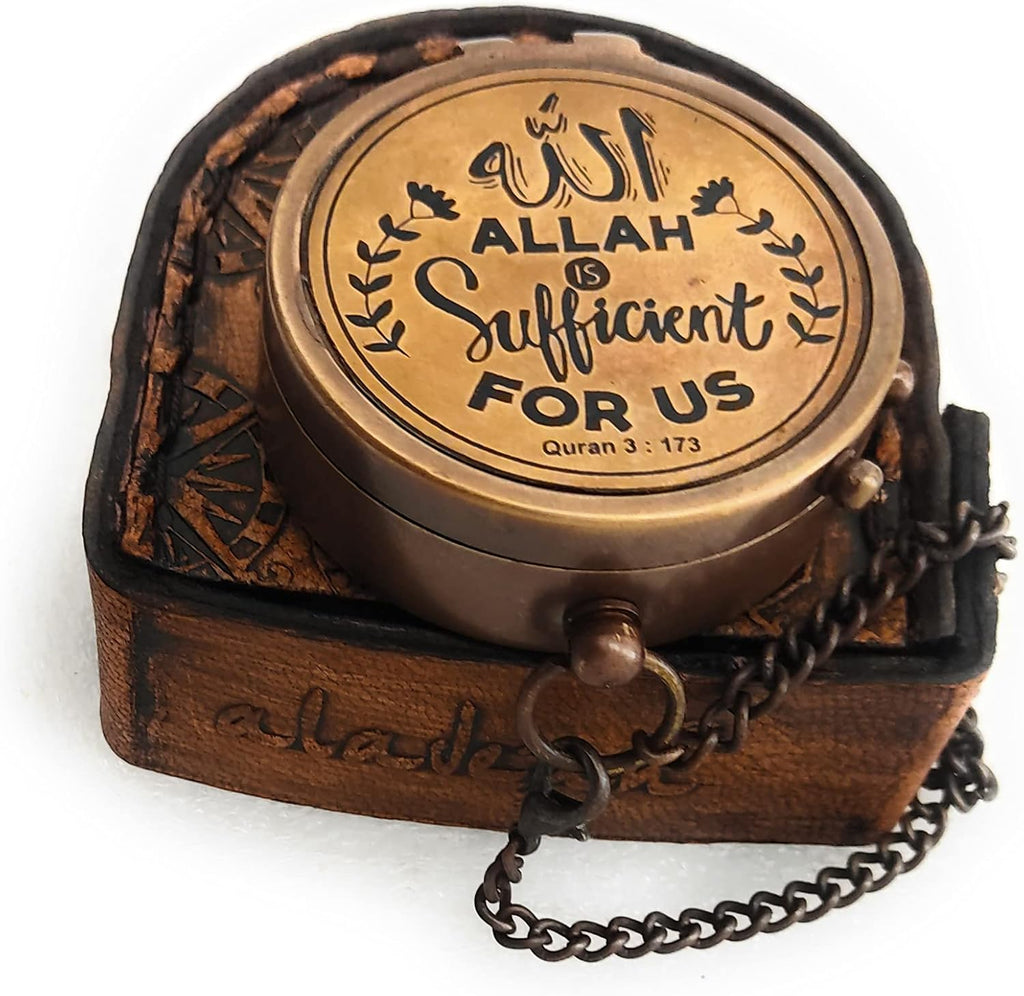 الله
ALLAH
IS
Sufficient
FOR US
Quran 3 : 173